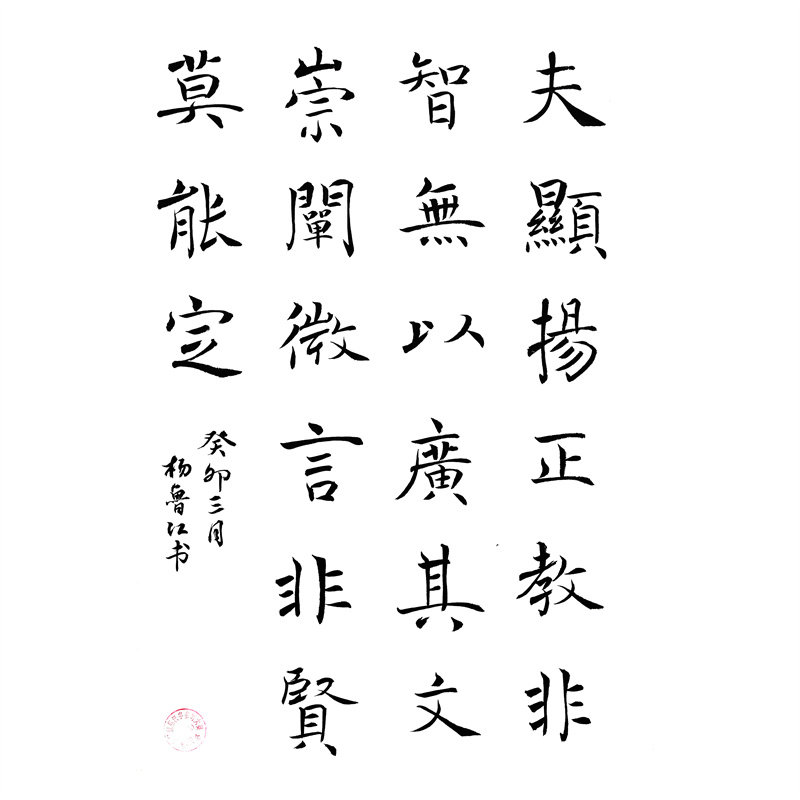 夫顯揚正教非
智無以廣其文
崇闡微言非賢
莫能定
癸卯三月
杨魯江书